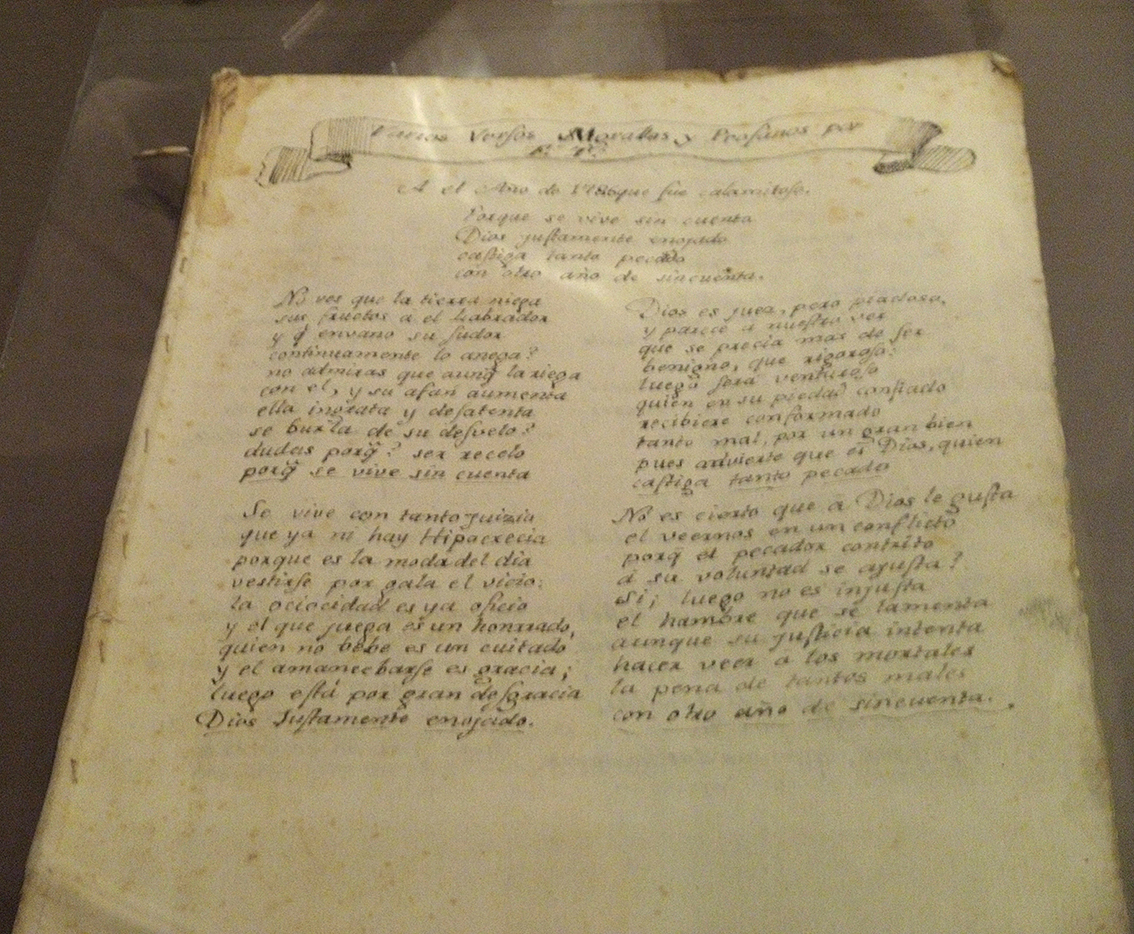 Varios Versos Morales y Profanos por
A el Año de 1786 que fue calamitoso.
Porque se vive sin cuenta
Dios justamente enojado
castiga tanto pecado
con otro año de sincuenta.
No ves que la tierra niega
sus frutos a el Labrador
y q̃ envano su sudor
continuamente lo anega?
no admiras que aunq̃ la riega
con el, y su afan aumenta
ella ingrata y desatenta
se burla de su desvelo?
dudas porq̃? ser recelo
porq̃ se vive sin cuenta
Se vive con tanto juizio
que ya ni hay Hipocrecia
porque es la moda del dia
vestirse por gala el vicio:
la ociocidad es ya oficio
y el que juega es un honrrado,
quien no bebe es un cuitado
y el amanecbarse es gracia;
luego está por gran desgracia
Dios Justamente enojado.
Dios es juez, pero piadoso,
y parece a nuestro ver
que se precia mas de ser
benigno, que rigoroso:
luego será venturoso
quien en su piedad confiado
recibiere conformado
tanto mal, por un gran bien
pues advierte que es Dios, quien
castiga tanto pecado
No es cierto que a Dios le gusta
el veernos en un conflicto
porq̃ el pecador contrito
á su voluntad se ajusta?
Si; luego no es injusta
el hambre que se lamenta
aunque su justicia intenta
hacer veer á los mortales
la pena de tantos males
con otro año de sincuenta.